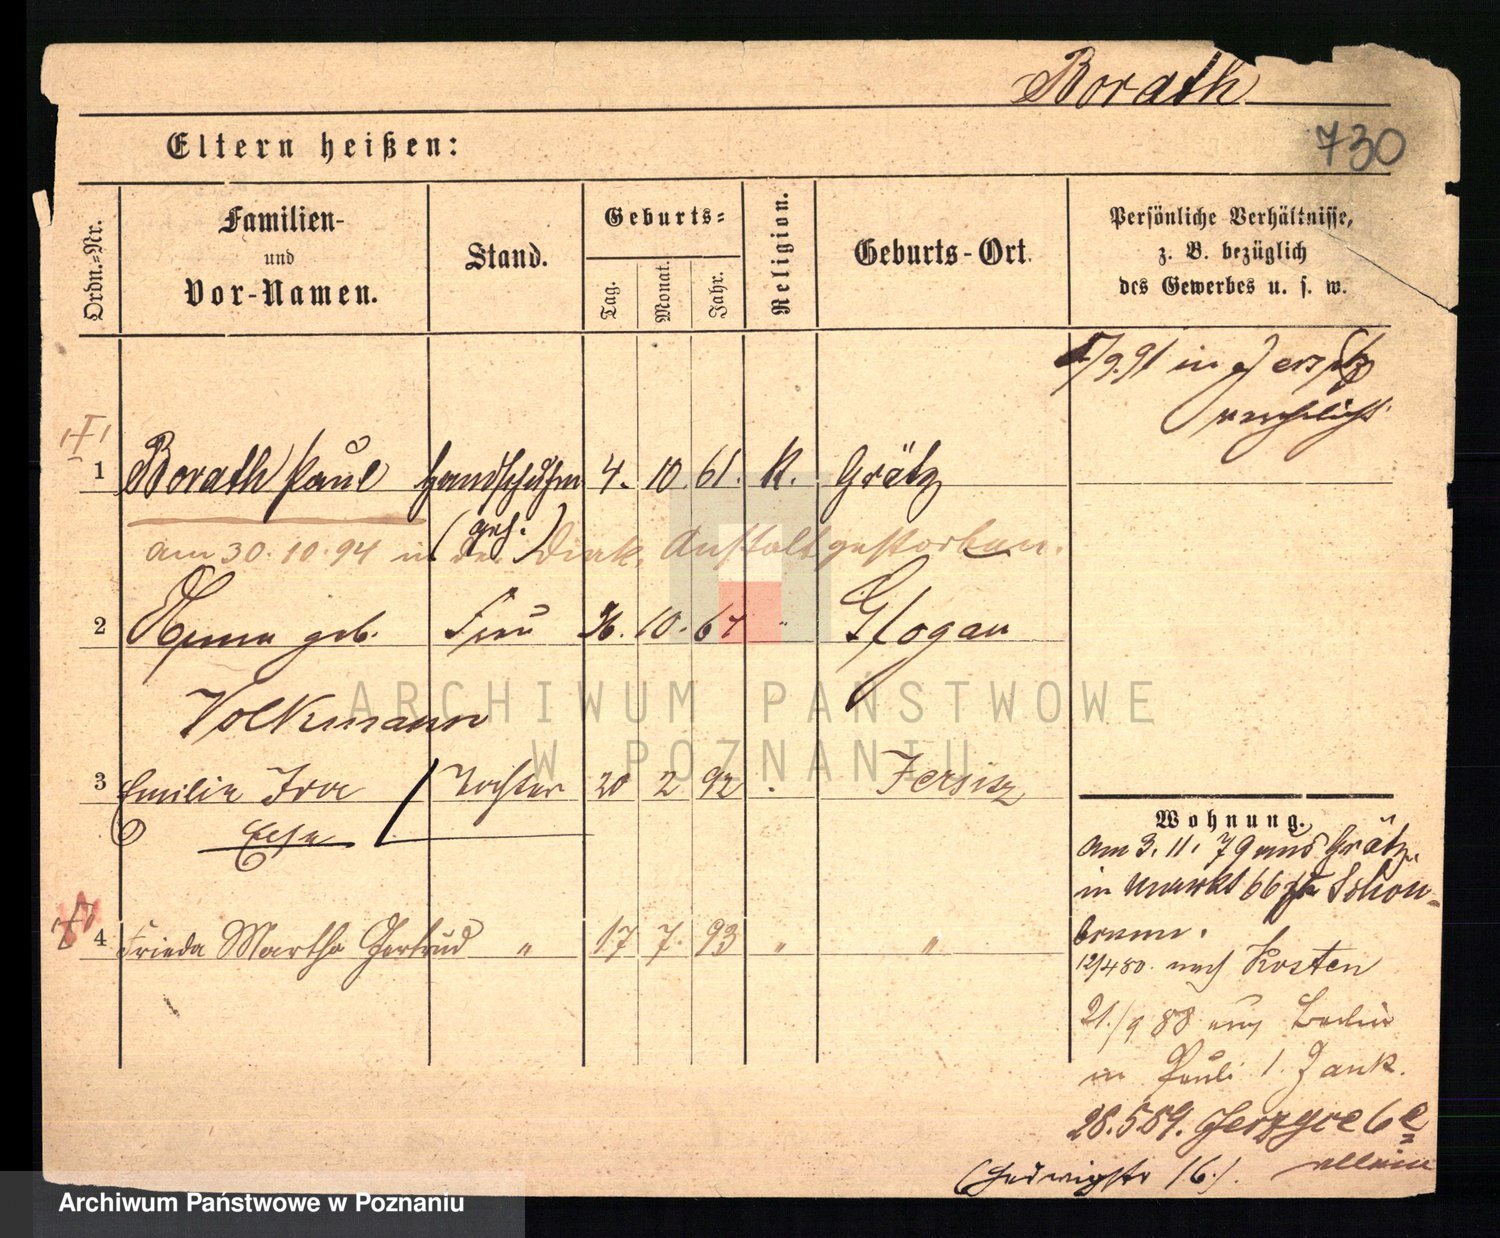 Borath
730
Eltern heißen:
Ordn.-Nr.
Familien-
und
Vor-Namen.
Stand.
Geburts-
Tag.
Monat.
Jahr.
Religion.
Geburts-Ort.
Persönliche Verhältnisse,
z. B. bezüglich
des Gewerbes u. s. w.
/9.91 in Jersitz
verehelicht
1 Borath Paul Handschuhm 4. 10. 61. K. Grätz
(geh.)
am 30.10.94 in der Diak. Anstalt gestorben.
2 Anna geb. Frau 26. 10. 67 " Glogau
Volkmann
3 Emilie Frau Tochter 20 2 92 . Jersitz
4 Frieda Martha Gertrud " 17 7. 93 " "
Wohnung.
am 3.11.79 aus Grätz
in Markt 66 zu Schön-
brunn.
12/4 80. nach Kosten
21./9 88 aus Berlin
in Pauli 1. Zank.
28.5.89.
allein
(Hedwigstr 16.).
ARCHIWUM PAŃSTWOWE
W POZNANIU
Archiwum Państwowe w Poznaniu